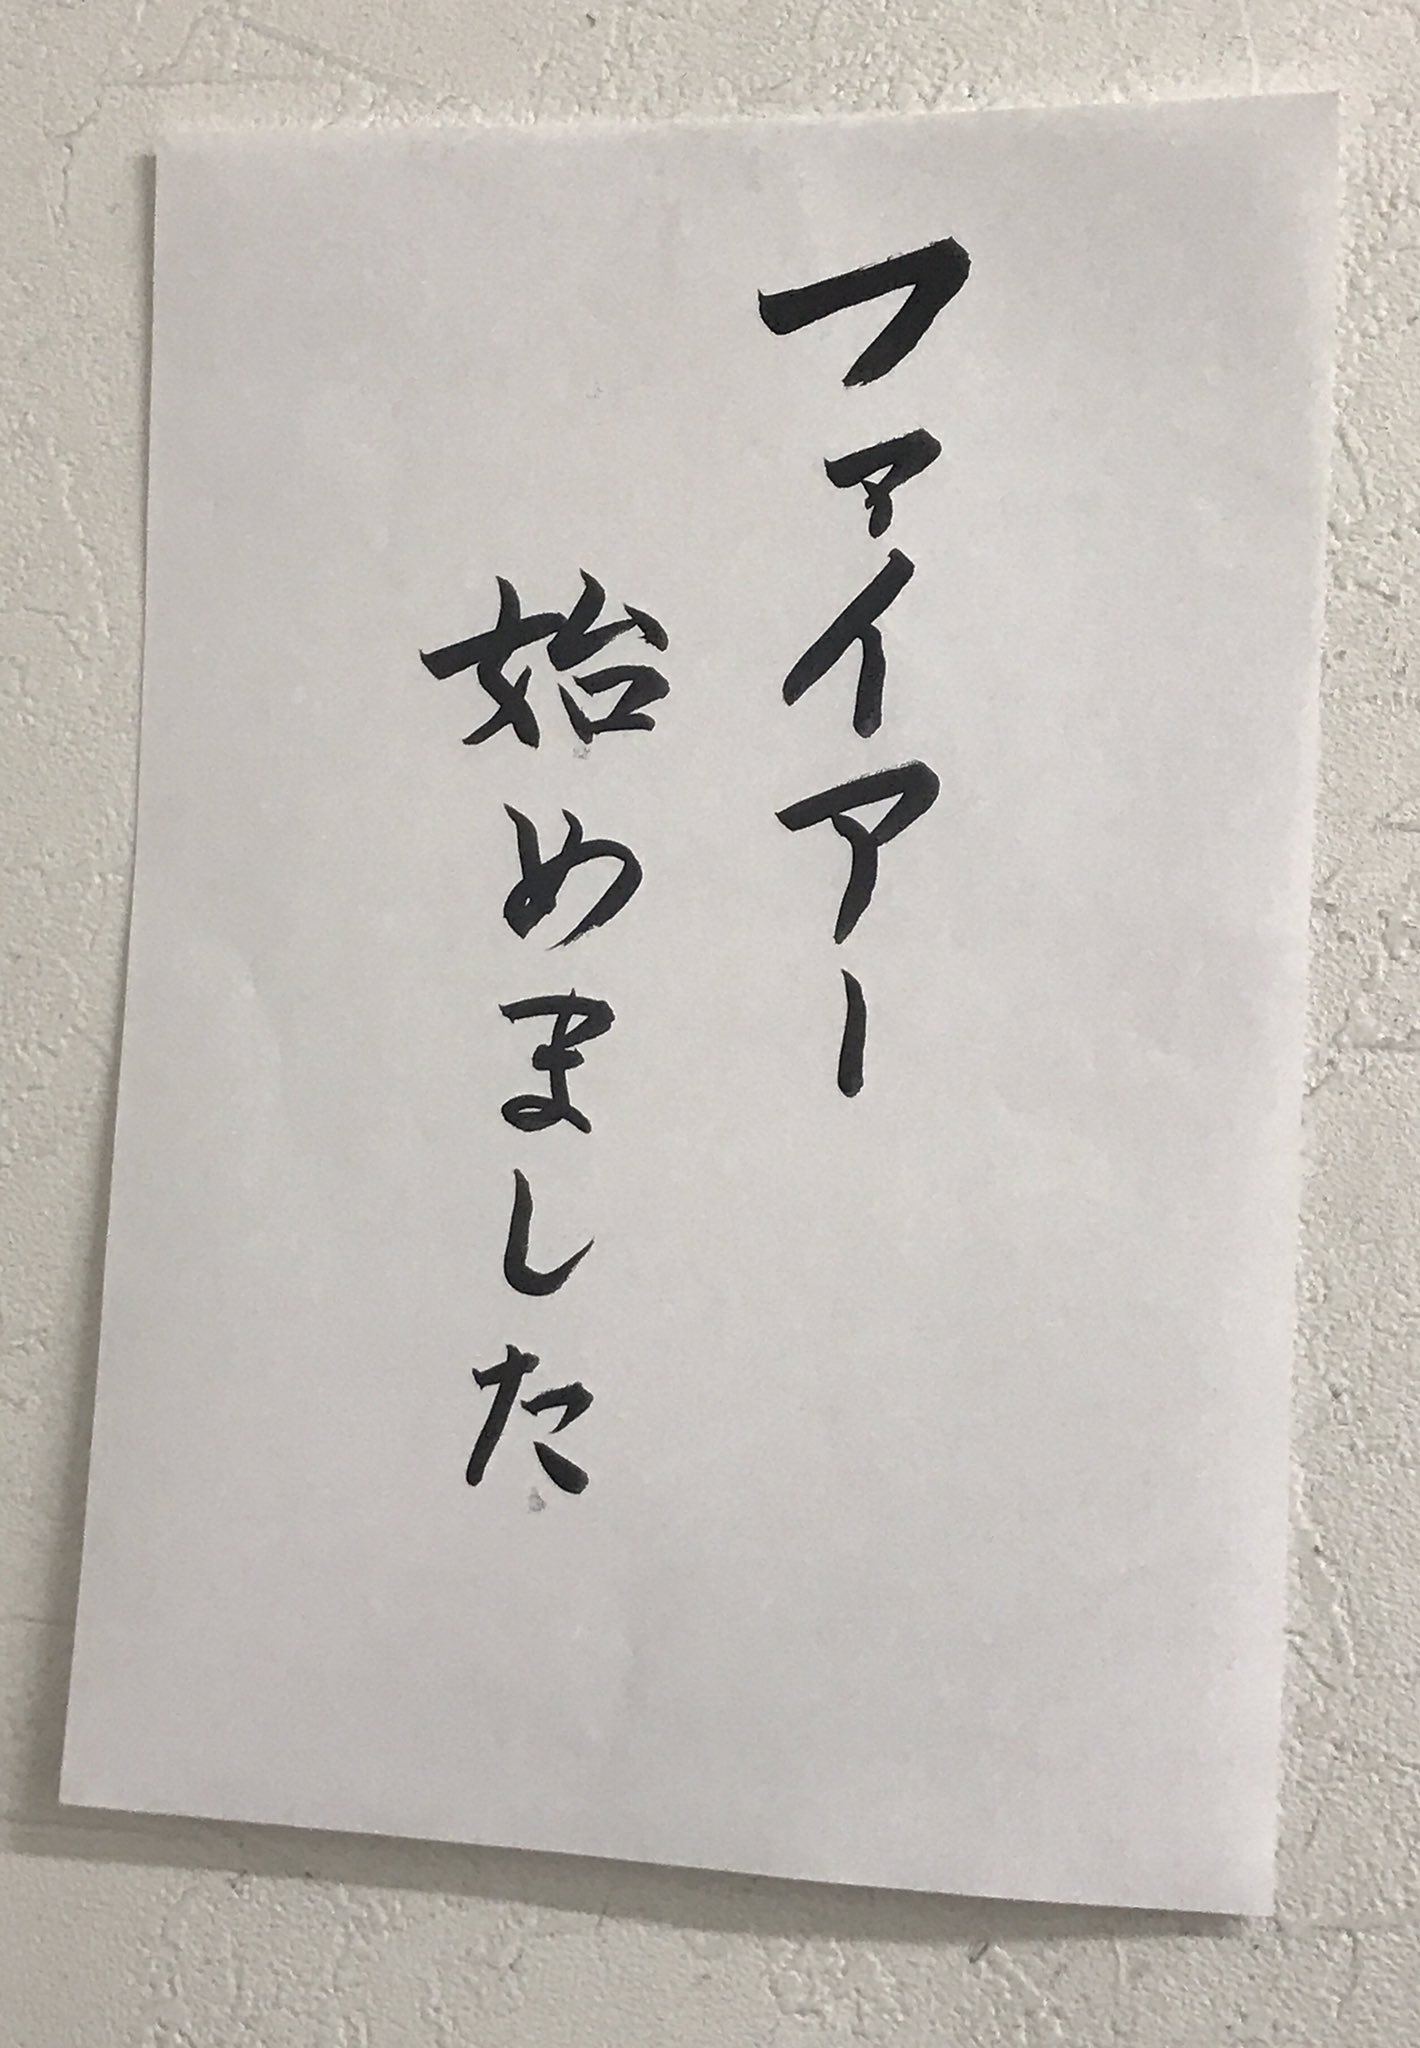 ファイアー
始めました